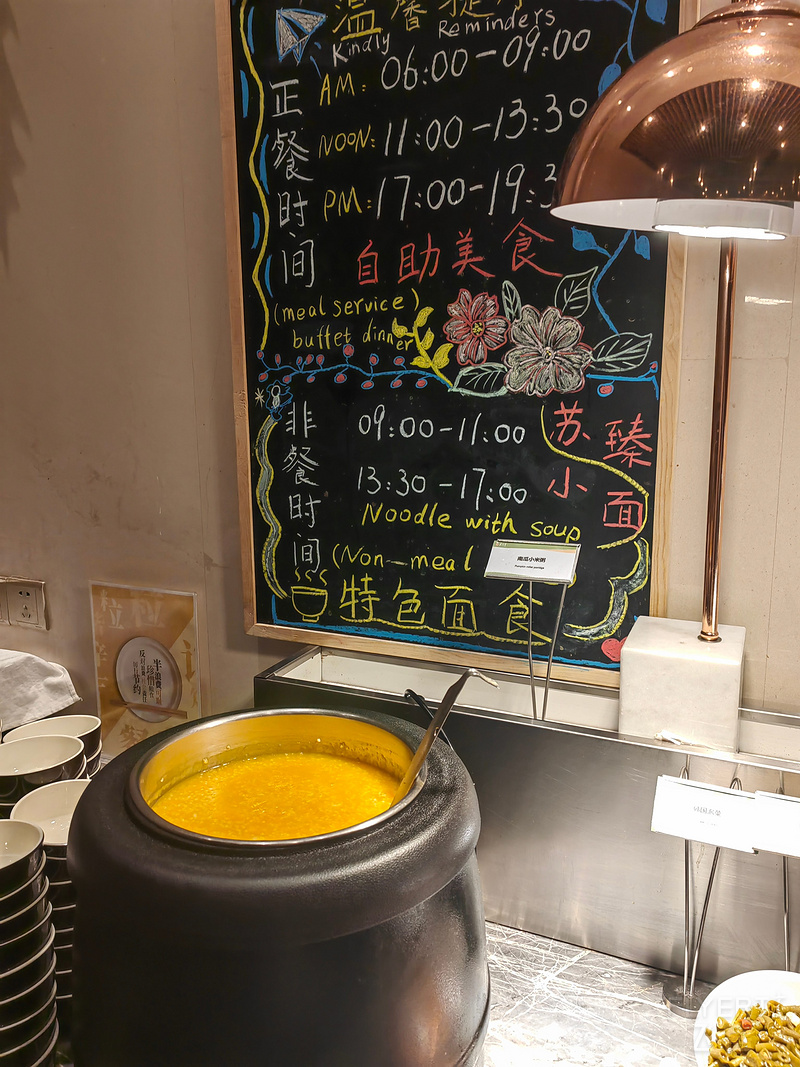 温馨提示
Kindly Reminders
正餐时间
AM: 06:00-09:00
NOON: 11:00-13:30
PM: 17:00-19:3
自助美食
(meal service)
buffet dinner
非餐时间
09:00-11:00
13:30-17:00
苏小面
臻
Noodle with soup
(Non-meal
特色面食
南瓜小米粥